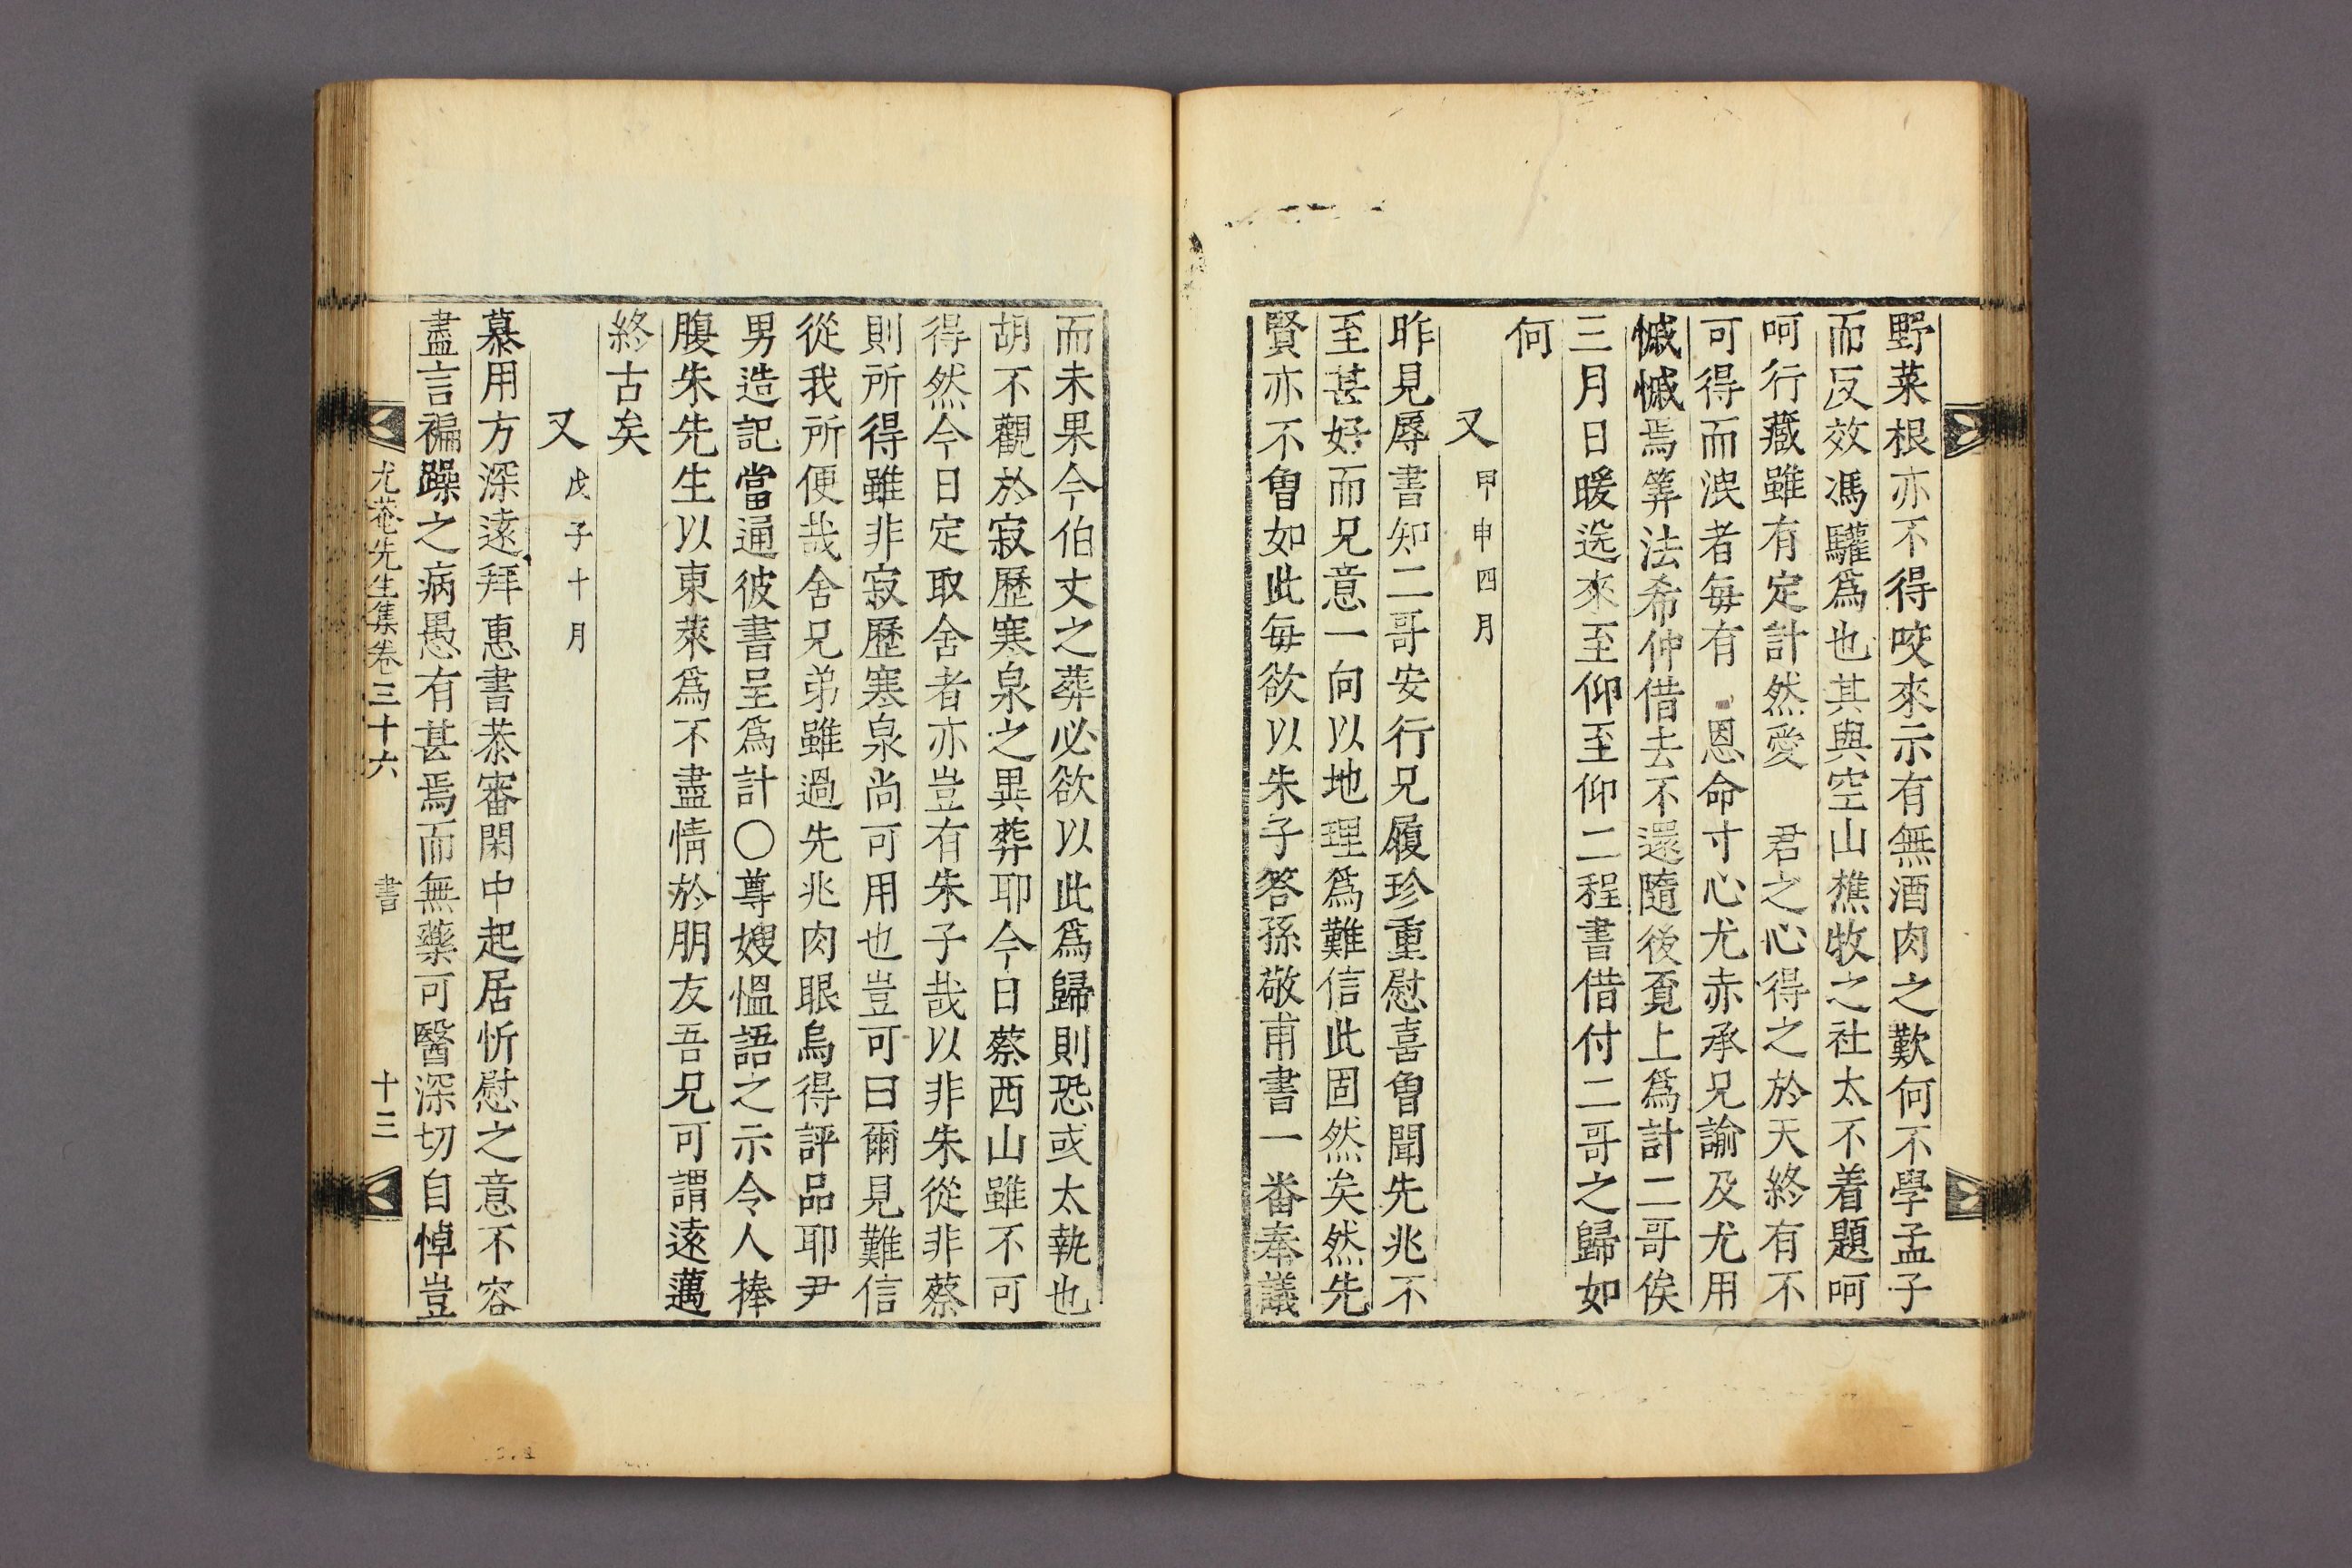 野菜根亦不得咬來示有無酒肉之歎何不學孟子
而反效馮驩爲也其與空山樵牧之社太不着題呵
呵行藏雖有定計然愛 君之心得之於天終有不
可得而洩者每有 恩命寸心尤赤承兄諭及尤用
慽慽焉筭法希仲借去不還隨後覔上爲計二哥俟
三月日暖送來至仰至仰二程書借付二哥之歸如
何
又 甲申四月
昨見辱書知二哥安行兄履珍重慰喜曾聞先兆不
至甚好而兄意一向以地理爲難信此固然矣然先
賢亦不曾如此每欲以朱子答孫敬甫書一番奉議
而未果今伯丈之葬必欲以此爲歸則恐或太執也
胡不觀於寂歷寒泉之異葬耶今日蔡西山雖不可
得然今日定取舍者亦豈有朱子哉以非朱從非蔡
則所得雖非寂歷寒泉尚可用也豈可曰爾見難信
從我所便哉舍兄弟雖過先兆肉眼烏得評品耶尹
男造記當通彼書呈爲計○尊嫂慍語之示令人捧
腹朱先生以東萊爲不盡情於朋友吾兄可謂遠邁
終古矣
又 戊子十月
慕用方深遠拜惠書恭審閑中起居忻慰之意不容
盡言褊躁之病愚有甚焉而無藥可醫深切自悼豈
尤菴先生集卷三十六 書 十三